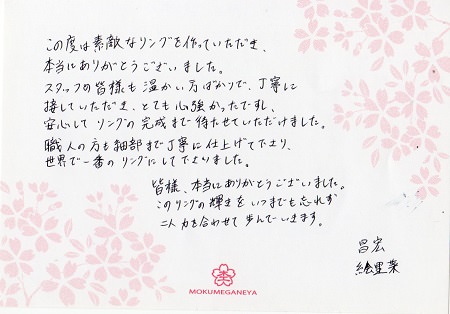 この度は素敵なリングを作っていただき、
本当にありがとうございました。
スタッフの皆様も温かい方ばかりで、丁寧に
接していただき、とても心強かったですし、
安心してリングの完成まで待たせていただけました。
職人の方も細部まで丁寧に仕上げて下さり、
世界で一番のリングにして下さいました。
皆様、本当にありがとうございました。
このリングの輝きをいつまでも忘れず
二人力を合わせて歩んでいきます。
昌宏
絵里菜
MOKUMEGANEYA